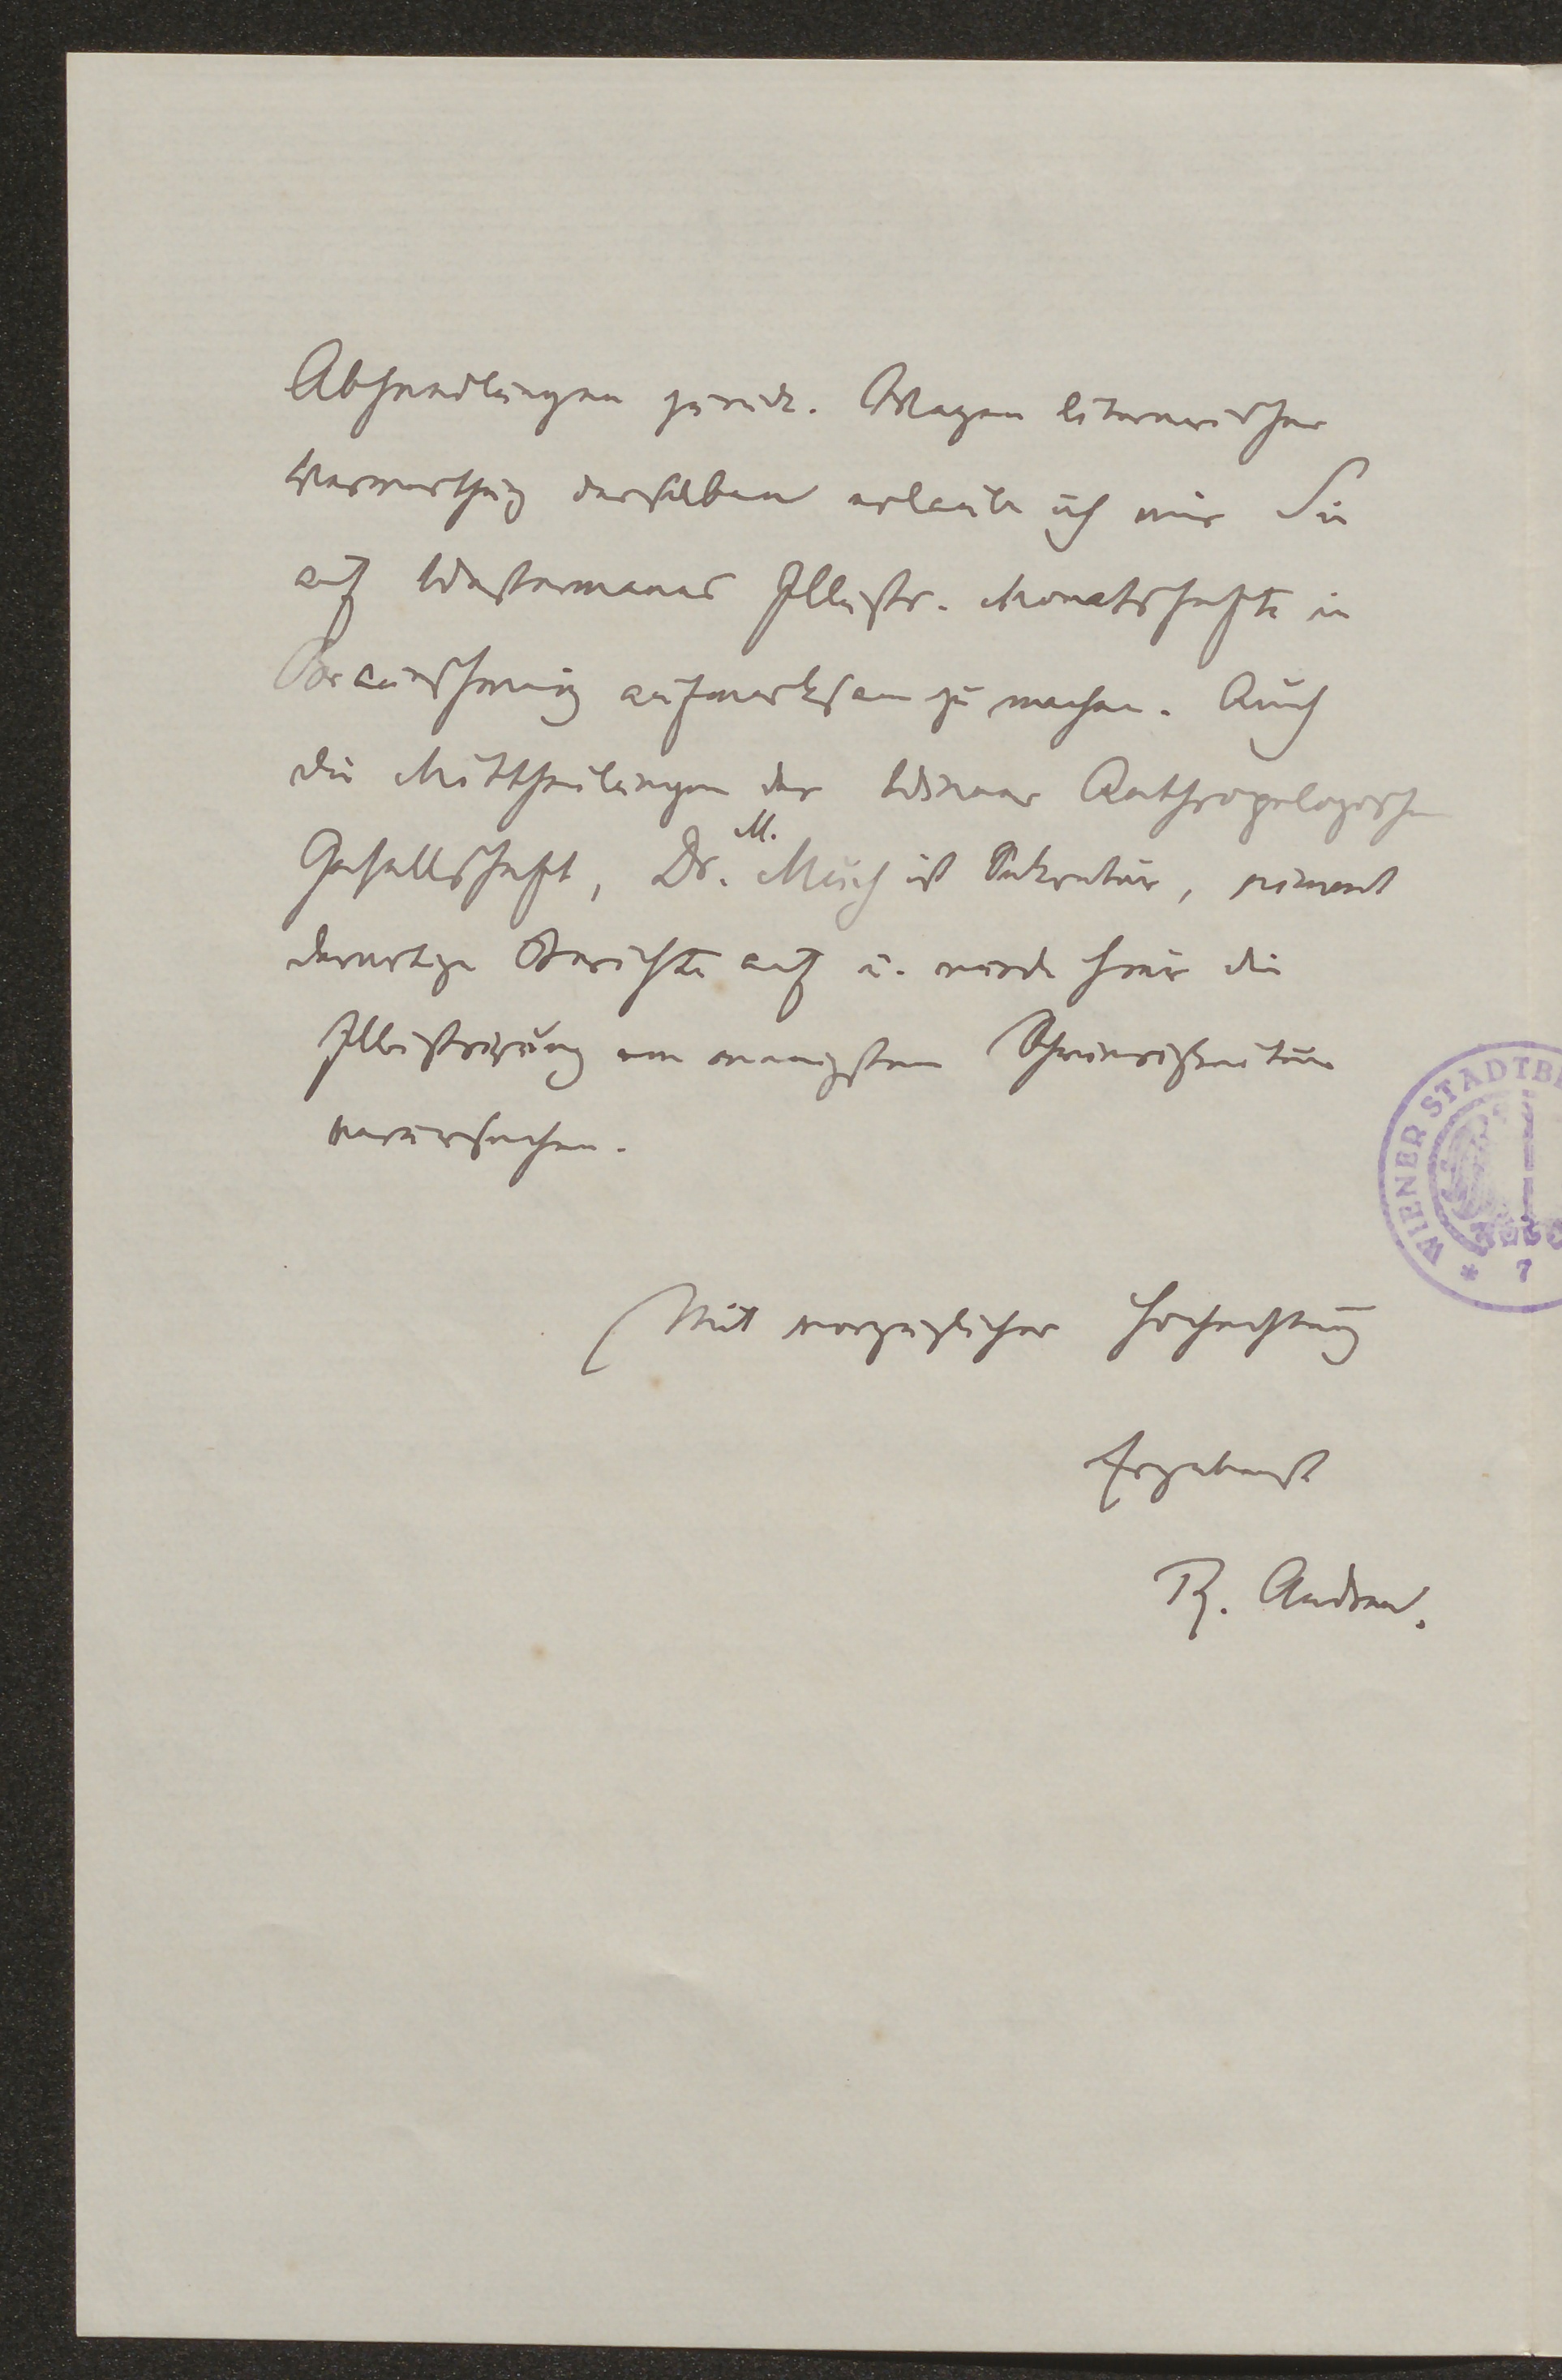 Abhandlungen zurück. Wegen literarischer
Verwerthung derselben erlaube ich mir Sie
auf Westermanns Illustr. Monatshefte in
Braunschweig aufmerksam zu machen. Auch
die Mittheilungen der Wiener Anthropologischen
Gesellschaft, Dr. M. Much ist Sekretär, nimmt
derartige Berichte auf u. würde hier die
Illustrirung am wenigsten Schwierigkeiten
verursachen.
Mit vorzüglicher Hochachtung
Ergebenst
R. Andree.
WIENER STADTB
* 7